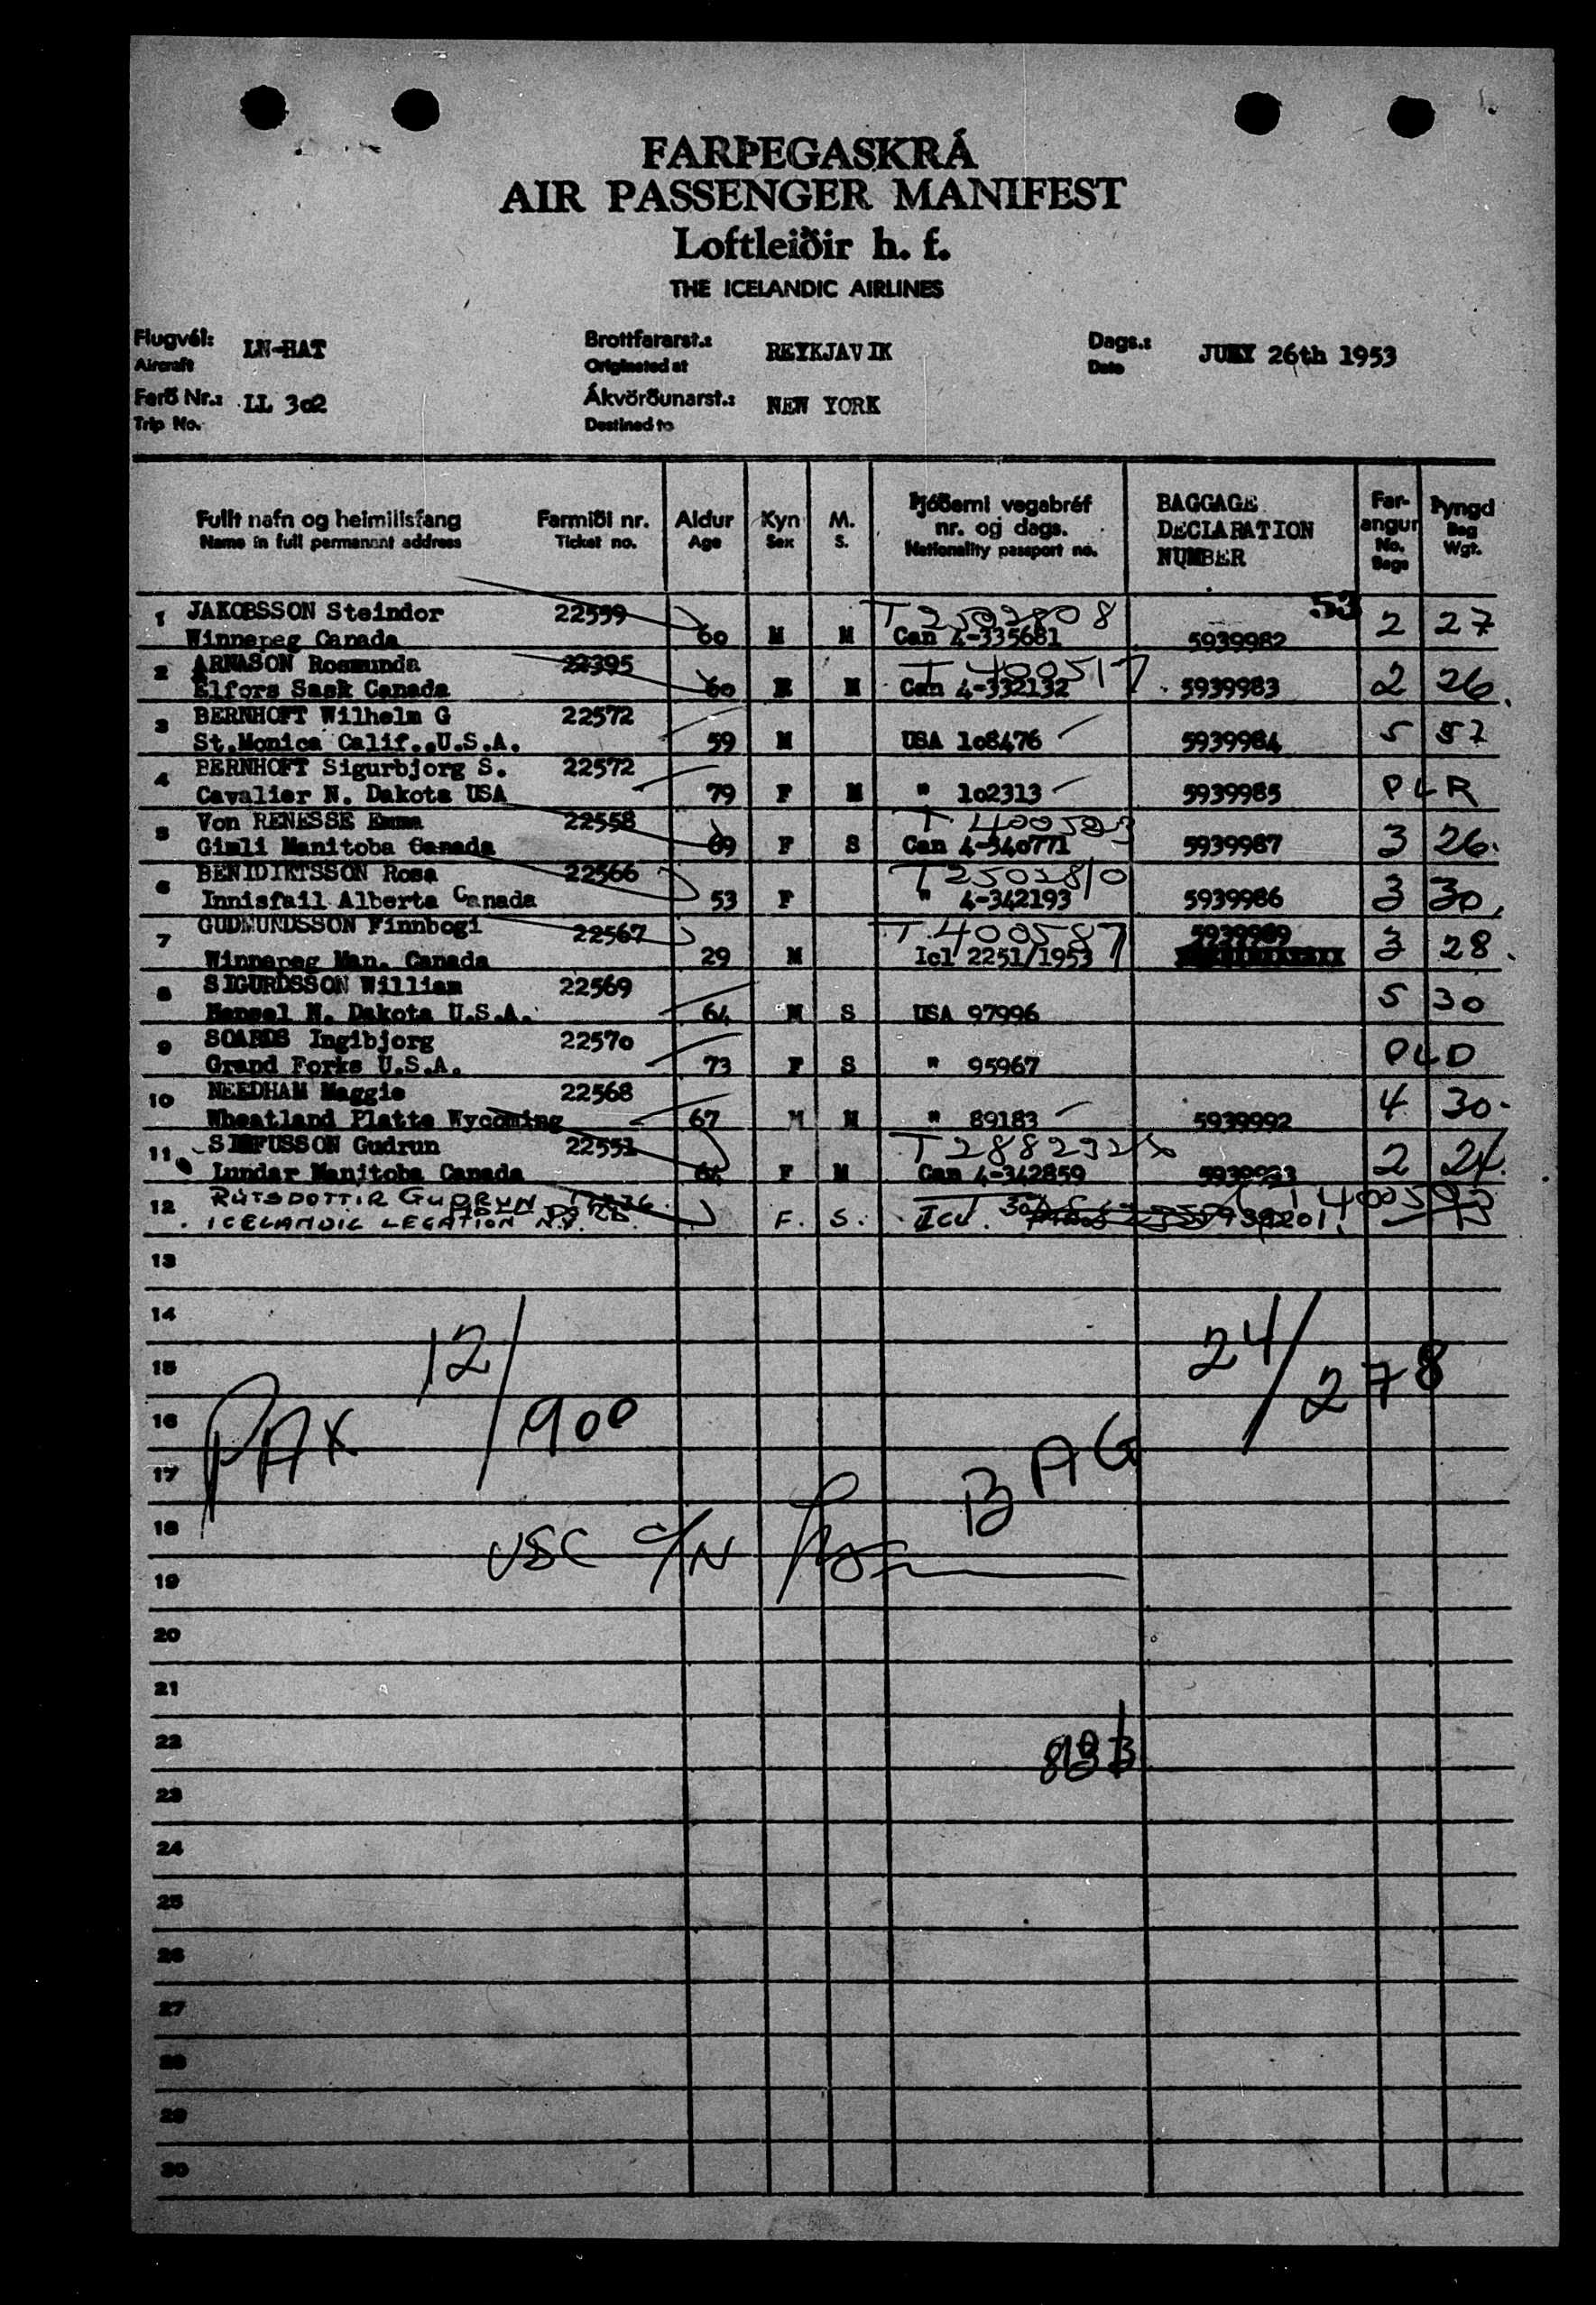 FARÞEGASKRÁ
AIR PASSENGER MANIFEST
Loftleiðir h. f.
THE ICELANDIC AIRLINES
Flugvél: LN-HAT Brottfararst.: REYKJAVIK Dags.: 26th 1953
Aircraft Originated at Date
Ferð Nr.: LL 302 Ákvörðunarst.: NEW YORK
Trip No. Destined to
Fullt nafn og heimilisfang Farmiði nr. Aldur Kyn M. Þjóðerni vegabréf nr. og dags. BAGGAGE DECLARATION NUMBER Far-angur Þyngd
Name in full permanent address Ticket no. Age Sex S. Nationality passport no. No. Bags Bag Wgt.
53
1 JAKOBSSON Steindor 22559 T2502808 2 27
Winnepeg Canada 60 M M Can 4-335681 5939982
2 ARNASON Rosmunda 22395 T400517 2 26
Elfors Sask Canada 60 M Can 4-332132 5939983
3 BERNHOFT Wilhelm G 22572 5 57
St.Monica Calif.,U.S.A. 59 M USA 108476 5939984
4 BERNHOFT Sigurbjorg S. 22572 PLR
Cavalier N. Dakota USA 79 F M " 102313 5939985
5 Von RENESSE Emma 22558 3 26
Gimli Manitoba Canada 69 F S Can 4-340771 5939987
6 BENIDIKTSSON Rosa 22566 T2502810 3 30
Innisfail Alberta Canada 53 F " 4-342193 5939986
7 GUDMUNDSSON Finnbogi 22567 T400587 5939989 3 28
Winnepeg Man. Canada 29 M Icl 2251/1953
8 SIGURDSSON William 22569 5 30
Hensel N. Dakota U.S.A. 64 M S USA 97996
9 SOARDS Ingibjorg 22570 PLD
Grand Forks U.S.A. 73 F S " 95967
10 NEEDHAM Maggie 22568 4 30
Wheatland Platte Wycoming 67 M M " 89183 5939992
11 SIGFUSSON Gudrun 22551 2 24
Lundar Manitoba Canada 64 F M Can 4-342859
12 RUTSDOTTIR GUDRUN
ICELANDIC LEGATION F. S. Icl.
13
14
15 12/ 24/278
16 PAX 900 BAG
17
18 USC
19
20
21
22
23
24
25
26
27
28
29
30